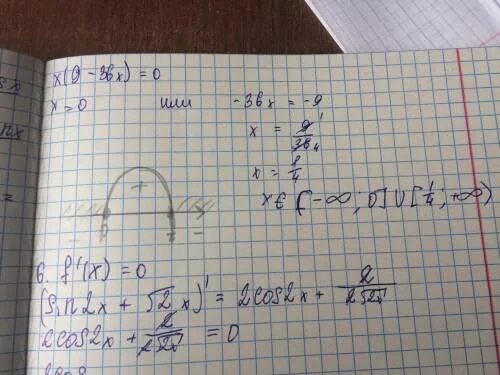 x(9 - 36x) = 0
x = 0 или -36x = -9
x = 9/36
x = 1/4
x ∈ (-∞; 0] ∪ [1/4; +∞)
+
- -
6. f'(x) = 0
(sin2x + √2x)' = 2cos2x + 2/2√2x
2cos2x + 2/2√2x = 0